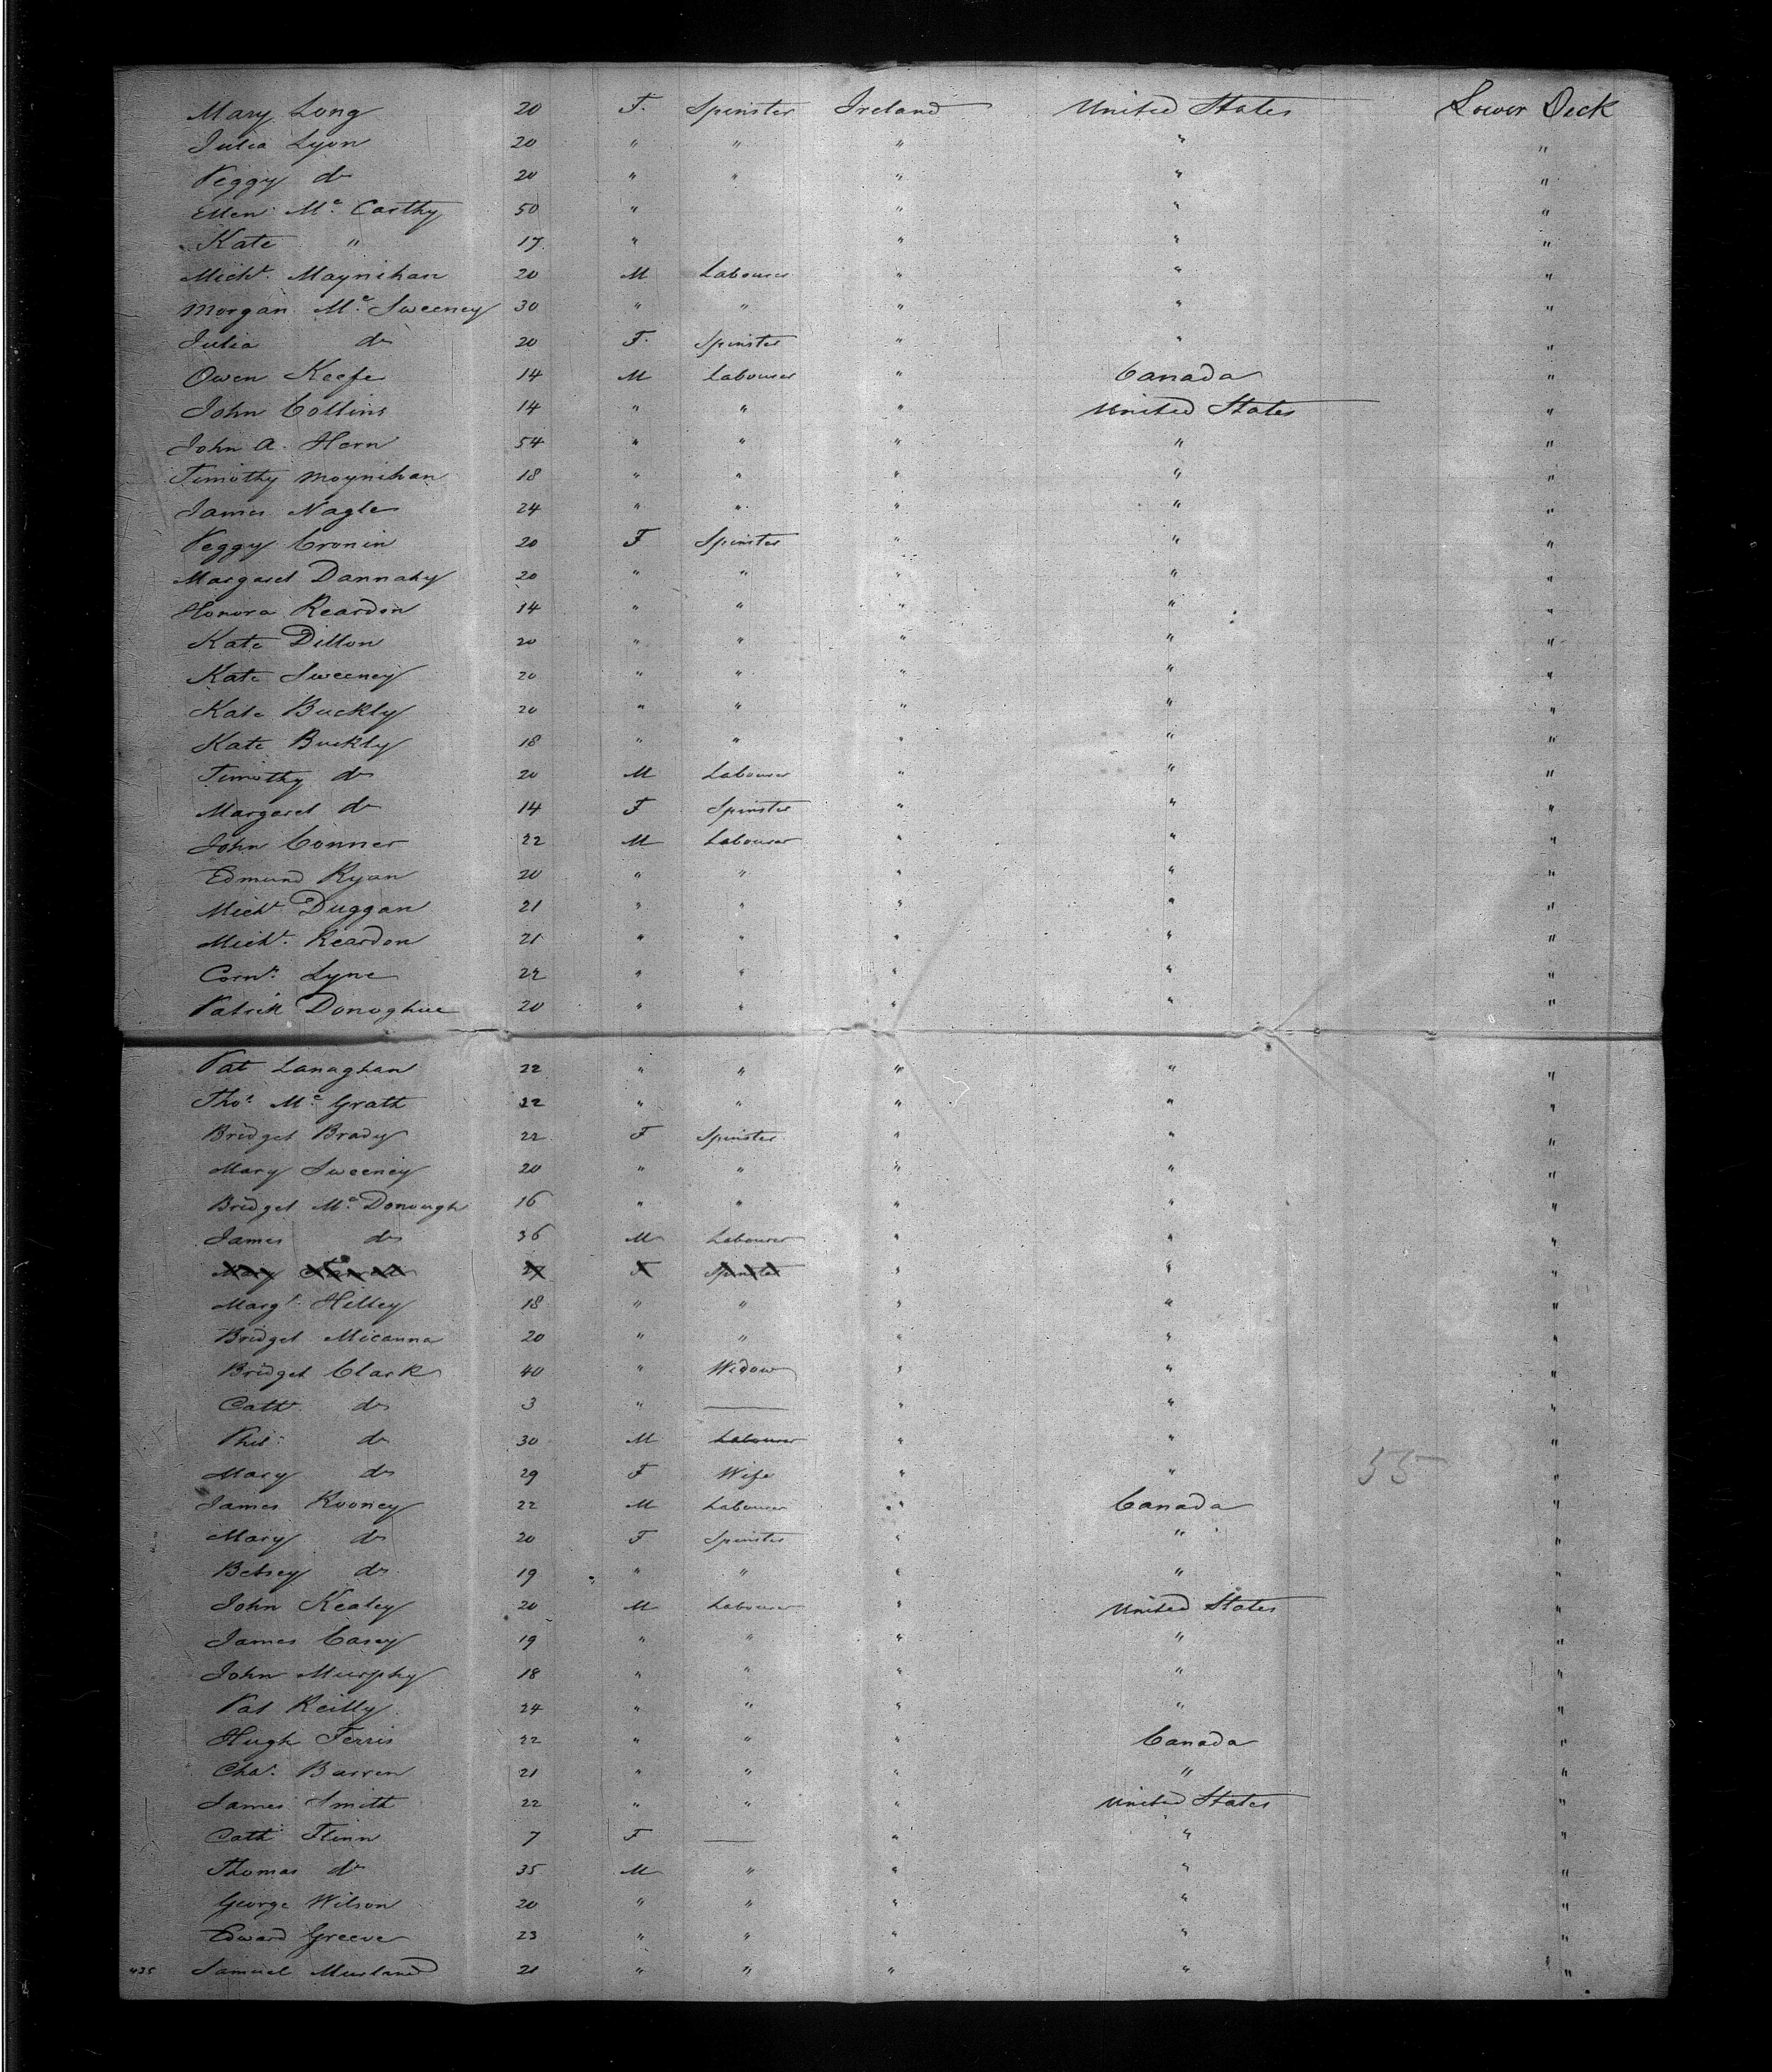 Mary Long 20 F. Spinster Ireland United States Lower Deck
Julia Lyon 20 " " " " "
Peggy do 20 " " " " "
Ellen Mc Carthy 50 " " " "
Kate " 17 " " " "
Michl. Maynihan 20 M Labourer " " "
Morgan Mc Sweeney 30 " " " " "
Julia do 20 F. Spinster " " "
Owen Keefe 14 M Labourer " Canada "
John Collins 14 " " " United States "
John A. Hern 54 " " " " "
Timothy Moynihan 18 " " " " "
James Nagle 24 " " " " "
Peggy Cronin 20 F Spinster " " "
Margaret Dannahy 20 " " " " "
Honora Reardon 14 " " " " "
Kate Dillon 20 " " " " "
Kate Sweeney 20 " " " " "
Kate Buckly 20 " " " " "
Kate Buckly 18 " " " " "
Timothy do 20 M Labourer " " "
Margaret do 14 F Spinster " " "
John Conner 22 M Labourer " " "
Edmund Ryan 20 " " " " "
Michl. Duggan 21 " " " " "
Michl. Reardon 21 " " " " "
Corns. Lyne 22 " " " " "
Patrick Donoghue 20 " " " " "
Pat Lanaghan 22 " " " " "
Thos. Mc Grath 22 " " " " "
Bridget Brady 22 F Spinster " " "
Mary Sweeney 20 " " " " "
Bridget Mc Donough 16 " " " " "
James do 36 M Labourer " " "
Mary 27 F Spinster " " "
Margt. Hilley 18 " " " " "
Bridget Micanna 20 " " " " "
Bridget Clark 40 " Widow " " "
Cath. do 3 " — " " "
Phil. do 30 M Labourer " " "
Mary do 29 F Wife " " 55 "
James Rooney 22 M Labourer " Canada "
Mary do 20 F Spinster " " "
Betsey do 19 " " " " "
John Kealey 20 M Labourer " United States "
James Casey 19 " " " " "
John Murphy 18 " " " " "
Pat Reilly 24 " " " " "
Hugh Ferris 22 " " " Canada "
Chas. Barren 21 " " " " "
James Smith 22 " " " United States "
Cath. Flinn 7 F — " " "
Thomas do 35 M " " " "
George Wilson 20 " " " " "
Edward Greeve 23 " " " " "
435 Samuel 21 " " " " "